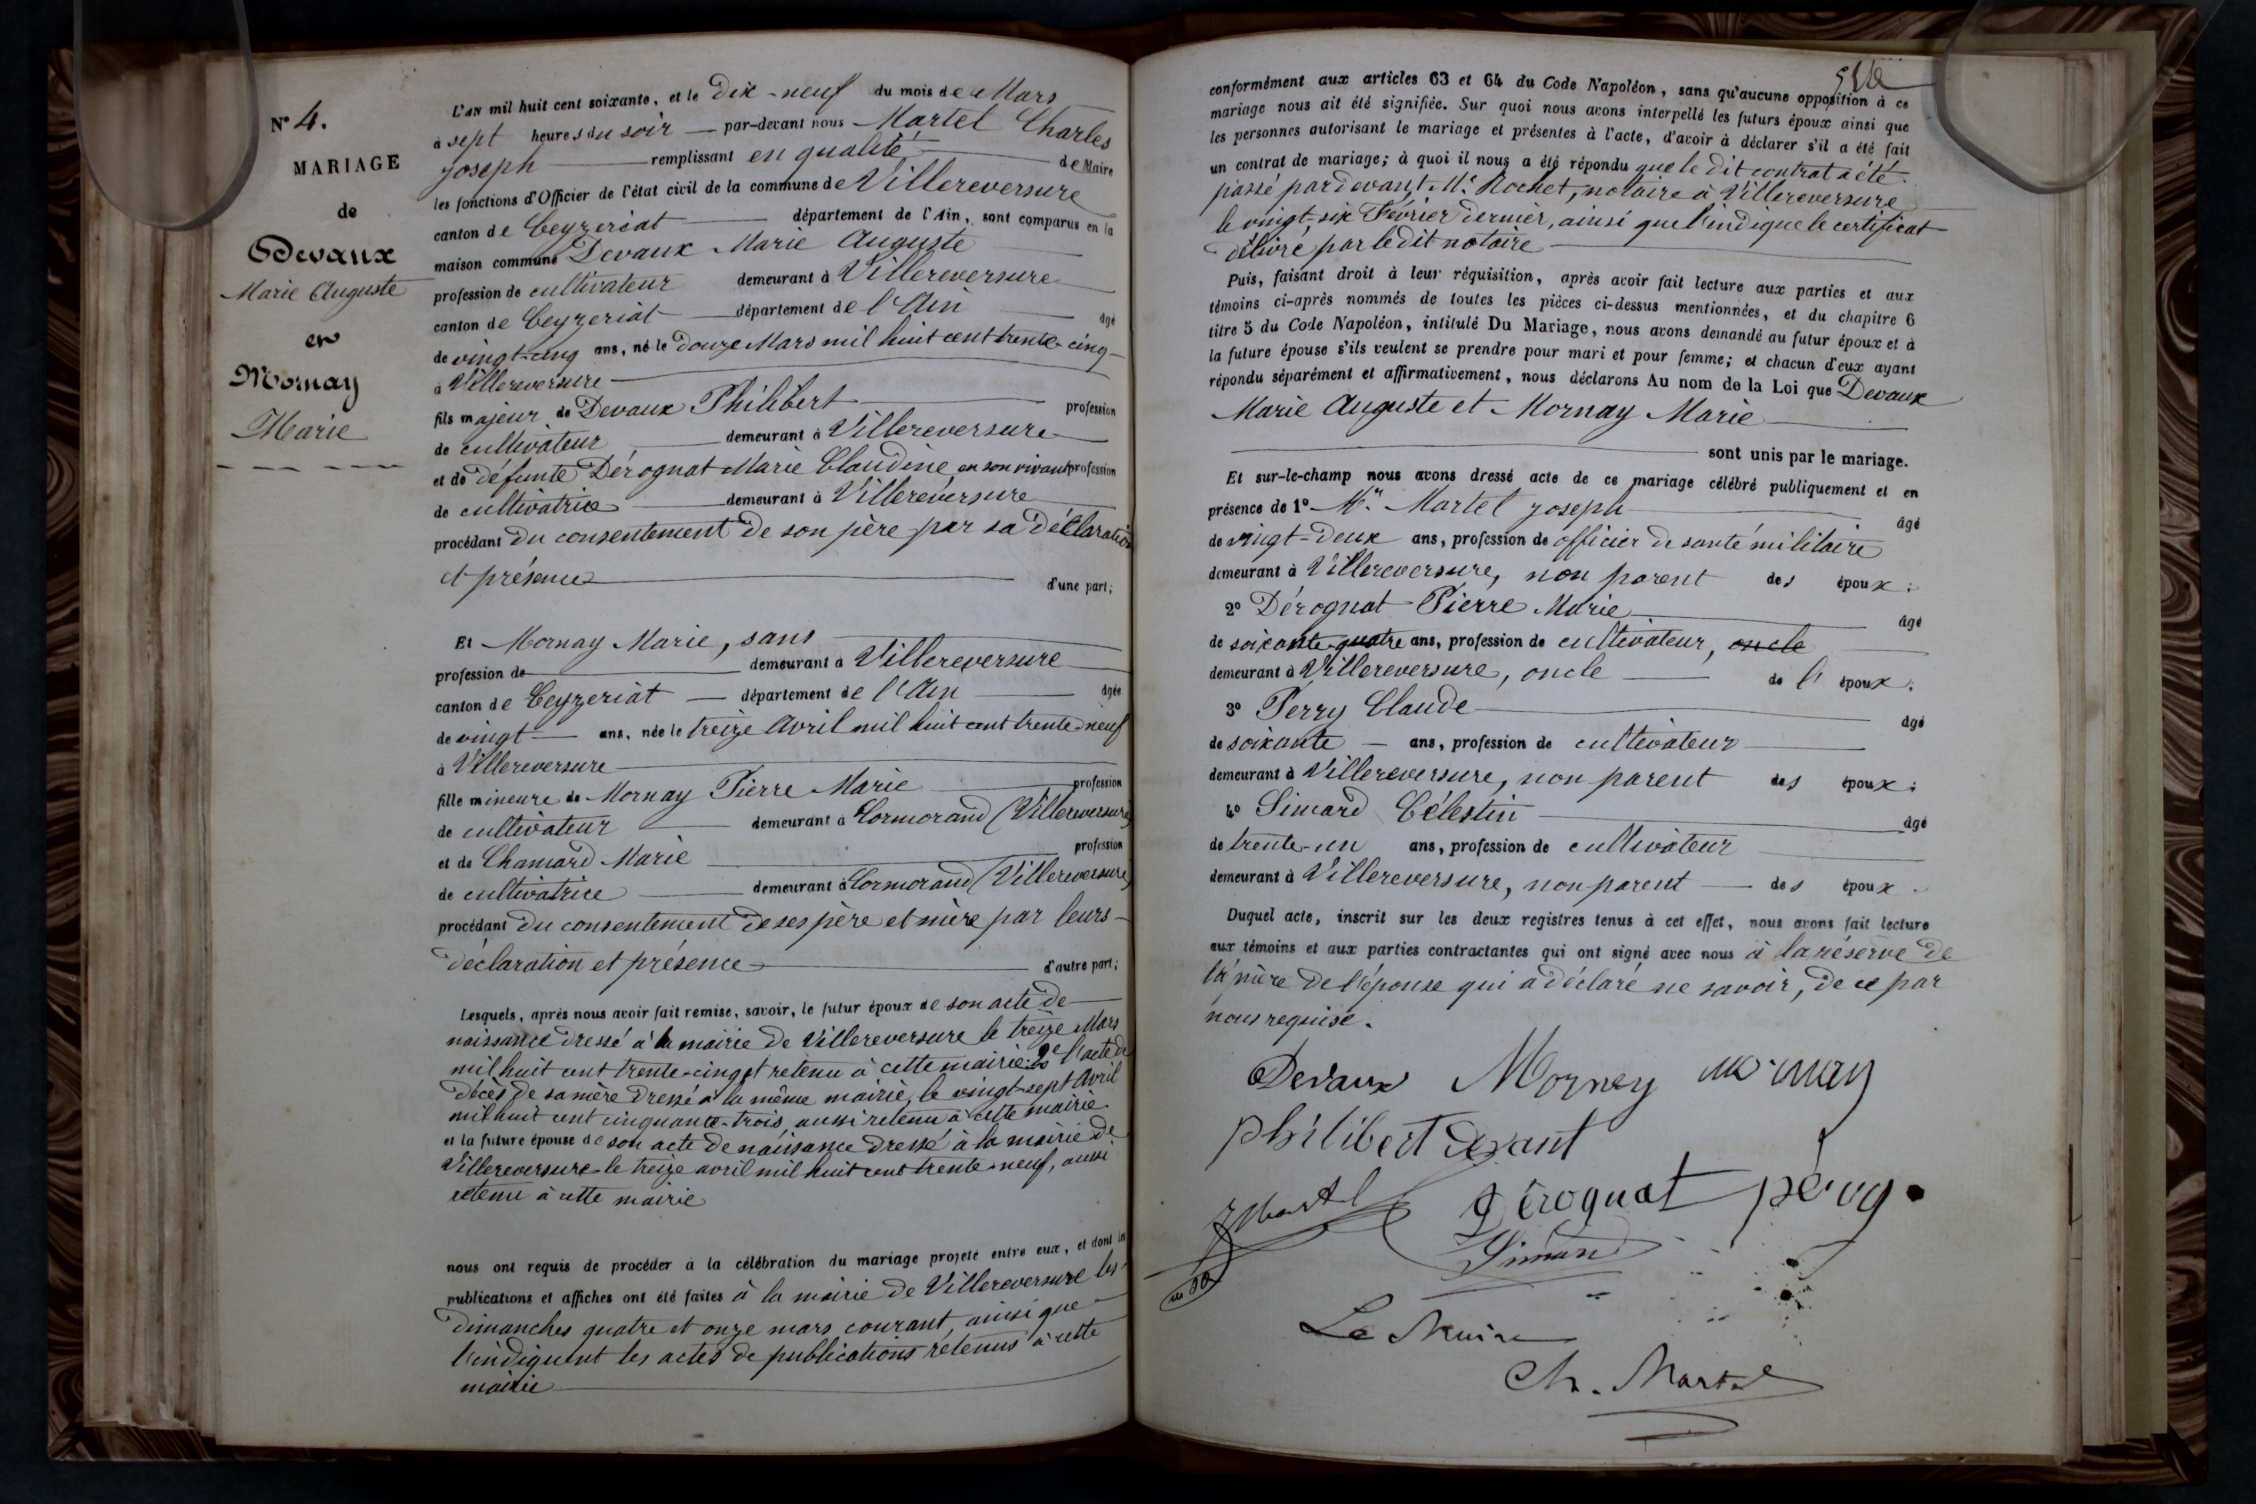 N° 4.
MARIAGE
de
Devaux
Marie Auguste
et
Mornay
Marie
L'an mil huit cent soixante, et le dix-neuf du mois de Mars
à sept heures du soir par-devant nous Martel Charles
Joseph remplissant en qualité de Maire
les fonctions d'Officier de l'état civil de la commune de Villereversure
canton de Ceyzeriat département de l'Ain, sont comparus en la
maison commune Devaux Marie Auguste
profession de cultivateur demeurant à Villereversure
canton de Ceyzeriat département de l'Ain âgé
de vingt-cinq ans, né le douze Mars mil huit cent trente-cinq
à Villereversure
fils majeur de Devaux Philibert profession
de cultivateur demeurant à Villereversure
et de défunte Dérognat Marie Claudine en son vivant profession
de cultivatrice demeurant à Villereversure
procédant du consentement de son père par sa déclaration
et présence d'une part;
Et Mornay Marie, sans
profession de demeurant à Villereversure
canton de Ceyzeriat département de l'Ain âgée
de vingt ans, née le treize Avril mil huit cent trente-neuf
à Villereversure
fille mineure de Mornay Pierre Marie profession
de cultivateur demeurant à Cormorand (Villereversure)
et de Chanard Marie profession
de cultivatrice demeurant à Cormorand (Villereversure)
procédant du consentement de ses père et mère par leurs
déclaration et présence d'autre part;
Lesquels, après nous avoir fait remise, savoir, le futur époux de son acte de
naissance dressé à la mairie de Villereversure le treize Mars
mil huit cent trente-cinq et retenu à cette mairie. 2° l'acte de
décès de sa mère dressé à la même mairie, le vingt-sept Avril
mil huit cent cinquante-trois, aussi retenu à cette mairie.
et la future épouse de son acte de naissance dressé à la mairie de
Villereversure le treize avril mil huit cent trente-neuf, aussi
retenu à cette mairie
nous ont requis de procéder à la célébration du mariage projeté entre eux, et dont les
publications et affiches ont été faites à la mairie de Villereversure les
dimanches quatre et onze mars courant, ainsi que
l'indiquent les actes de publications retenus à cette
mairie
conformément aux articles 63 et 64 du Code Napoléon, sans qu'aucune opposition à ce
mariage nous ait été signifiée. Sur quoi nous avons interpellé les futurs époux ainsi que
les personnes autorisant le mariage et présentes à l'acte, d'avoir à déclarer s'il a été fait
un contrat de mariage; à quoi il nous a été répondu que le dit contrat a été
passé pardevant Me Rochet, notaire à Villereversure
le vingt-six Février dernier, ainsi que l'indique le certificat
délivré par le dit notaire
Puis, faisant droit à leur réquisition, après avoir fait lecture aux parties et aux
témoins ci-après nommés de toutes les pièces ci-dessus mentionnées, et du chapitre 6
titre 5 du Code Napoléon, intitulé Du Mariage, nous avons demandé au futur époux et à
la future épouse s'ils veulent se prendre pour mari et pour femme; et chacun d'eux ayant
répondu séparément et affirmativement, nous déclarons Au nom de la Loi que Devaux
Marie Auguste et Mornay Marie
sont unis par le mariage.
Et sur-le-champ nous avons dressé acte de ce mariage célébré publiquement et en
présence de 1° Mr. Martel Joseph âgé
de vingt-deux ans, profession de officier de santé militaire
demeurant à Villereversure, non parent des époux;
2° Dérognat Pierre Marie âgé
de soixante-quatre ans, profession de cultivateur, oncle
demeurant à Villereversure, oncle de l' époux;
3° Perry Claude âgé
de soixante ans, profession de cultivateur
demeurant à Villereversure, non parent des époux;
4° Simard Célestin âgé
de trente-un ans, profession de cultivateur
demeurant à Villereversure, non parent des époux.
Duquel acte, inscrit sur les deux registres tenus à cet effet, nous avons fait lecture
aux témoins et aux parties contractantes qui ont signé avec nous à la réserve de
la mère de l'épouse qui a déclaré ne savoir, de ce par
nous requise.
Devaux Mornay mornay
philibert devant
J Martel Dérognat pérry
Simard
Le Maire
Ch. Martel